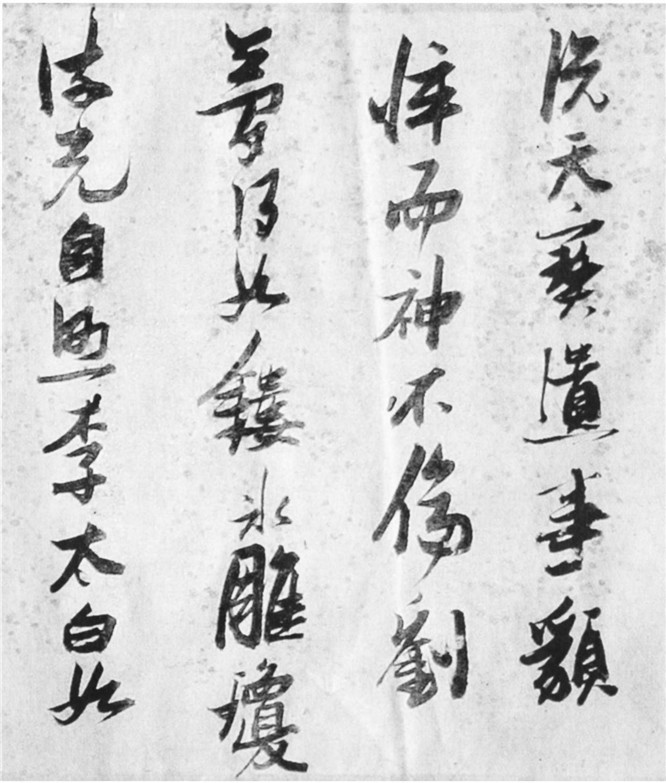 說天寶遺事貌
悴而神不傷劉
夢得如鏤冰雕瓊
流光自照李太白如